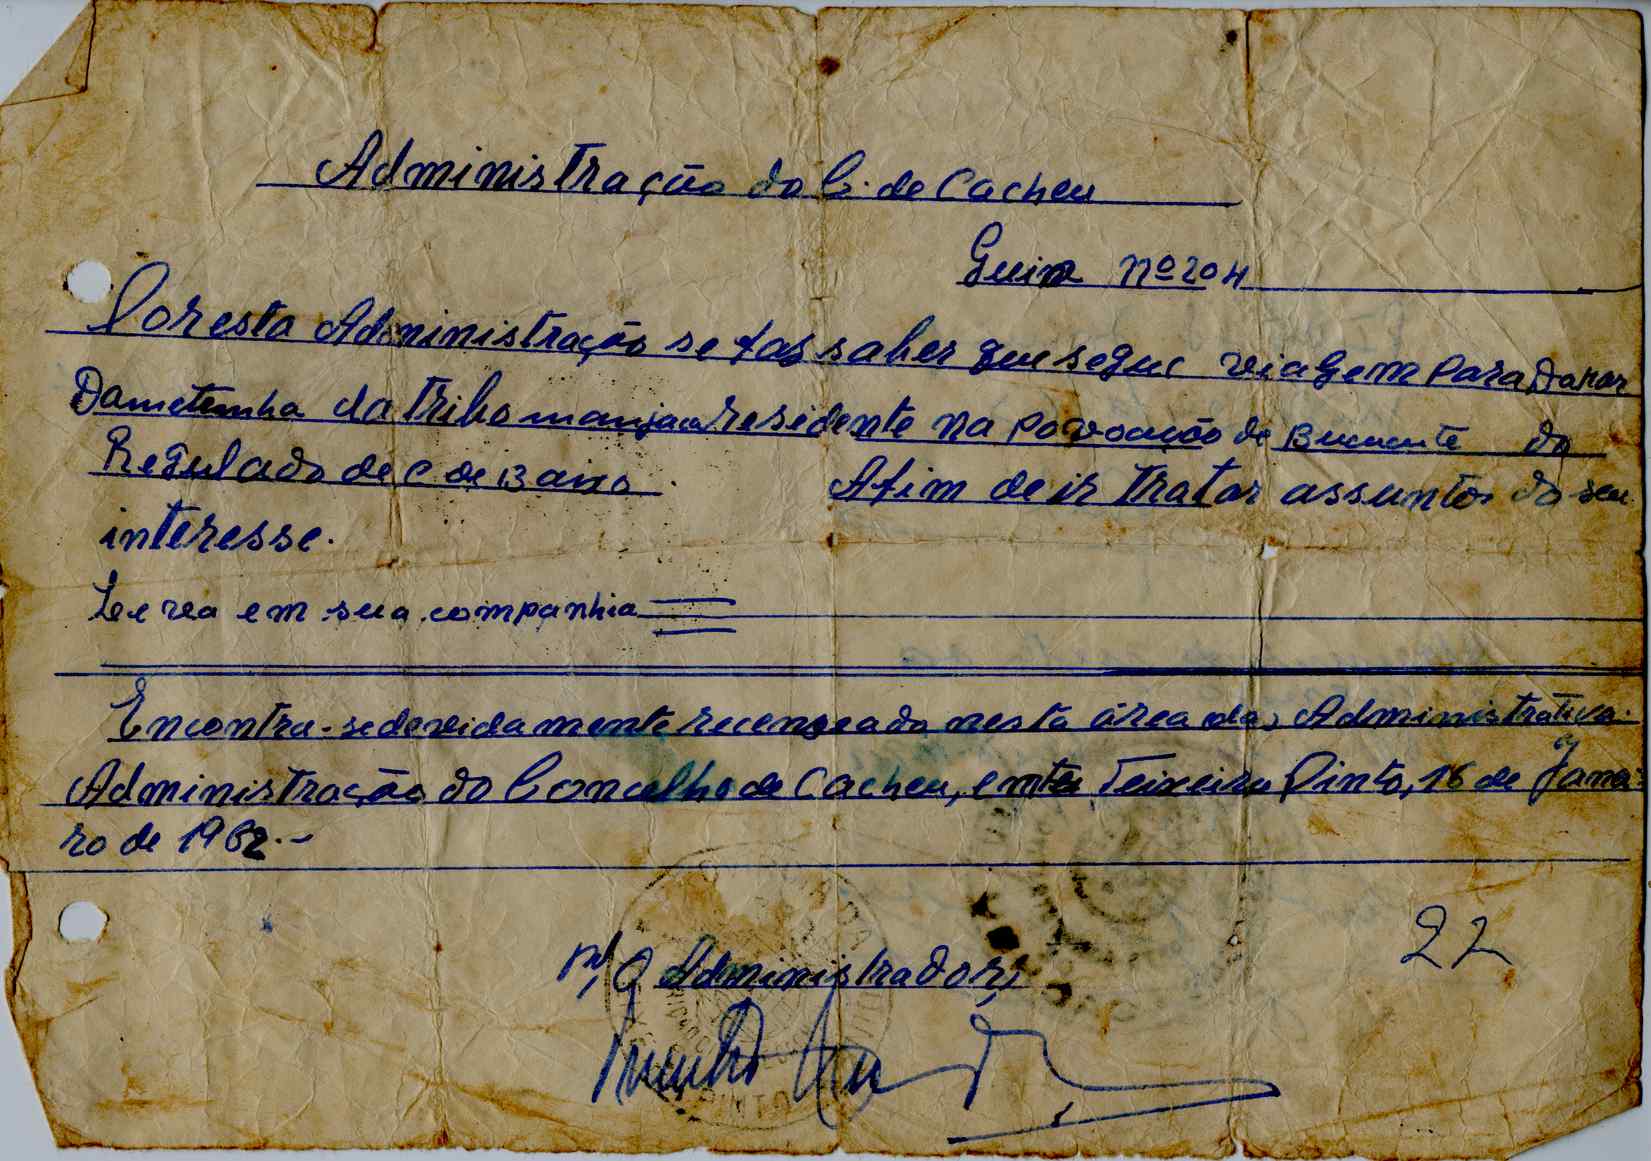 Administração do C. de Cacheu
Guia nº 204
Por esta Administração se faz saber que segue viagem para Dakar
Dametemha da tribo manjaca residente na povoação de Bucucute do
Regulado de C de Baixo Afim de ir tratar assuntos do seu
interesse.
Leva em sua companhia
Encontra-se devidamente recenseado nesta área Administrativa.
Administração do Concelho de Cacheu, em Teixeira Pinto, 16 de Janei
ro de 1962.-
22
P'O Administrador,